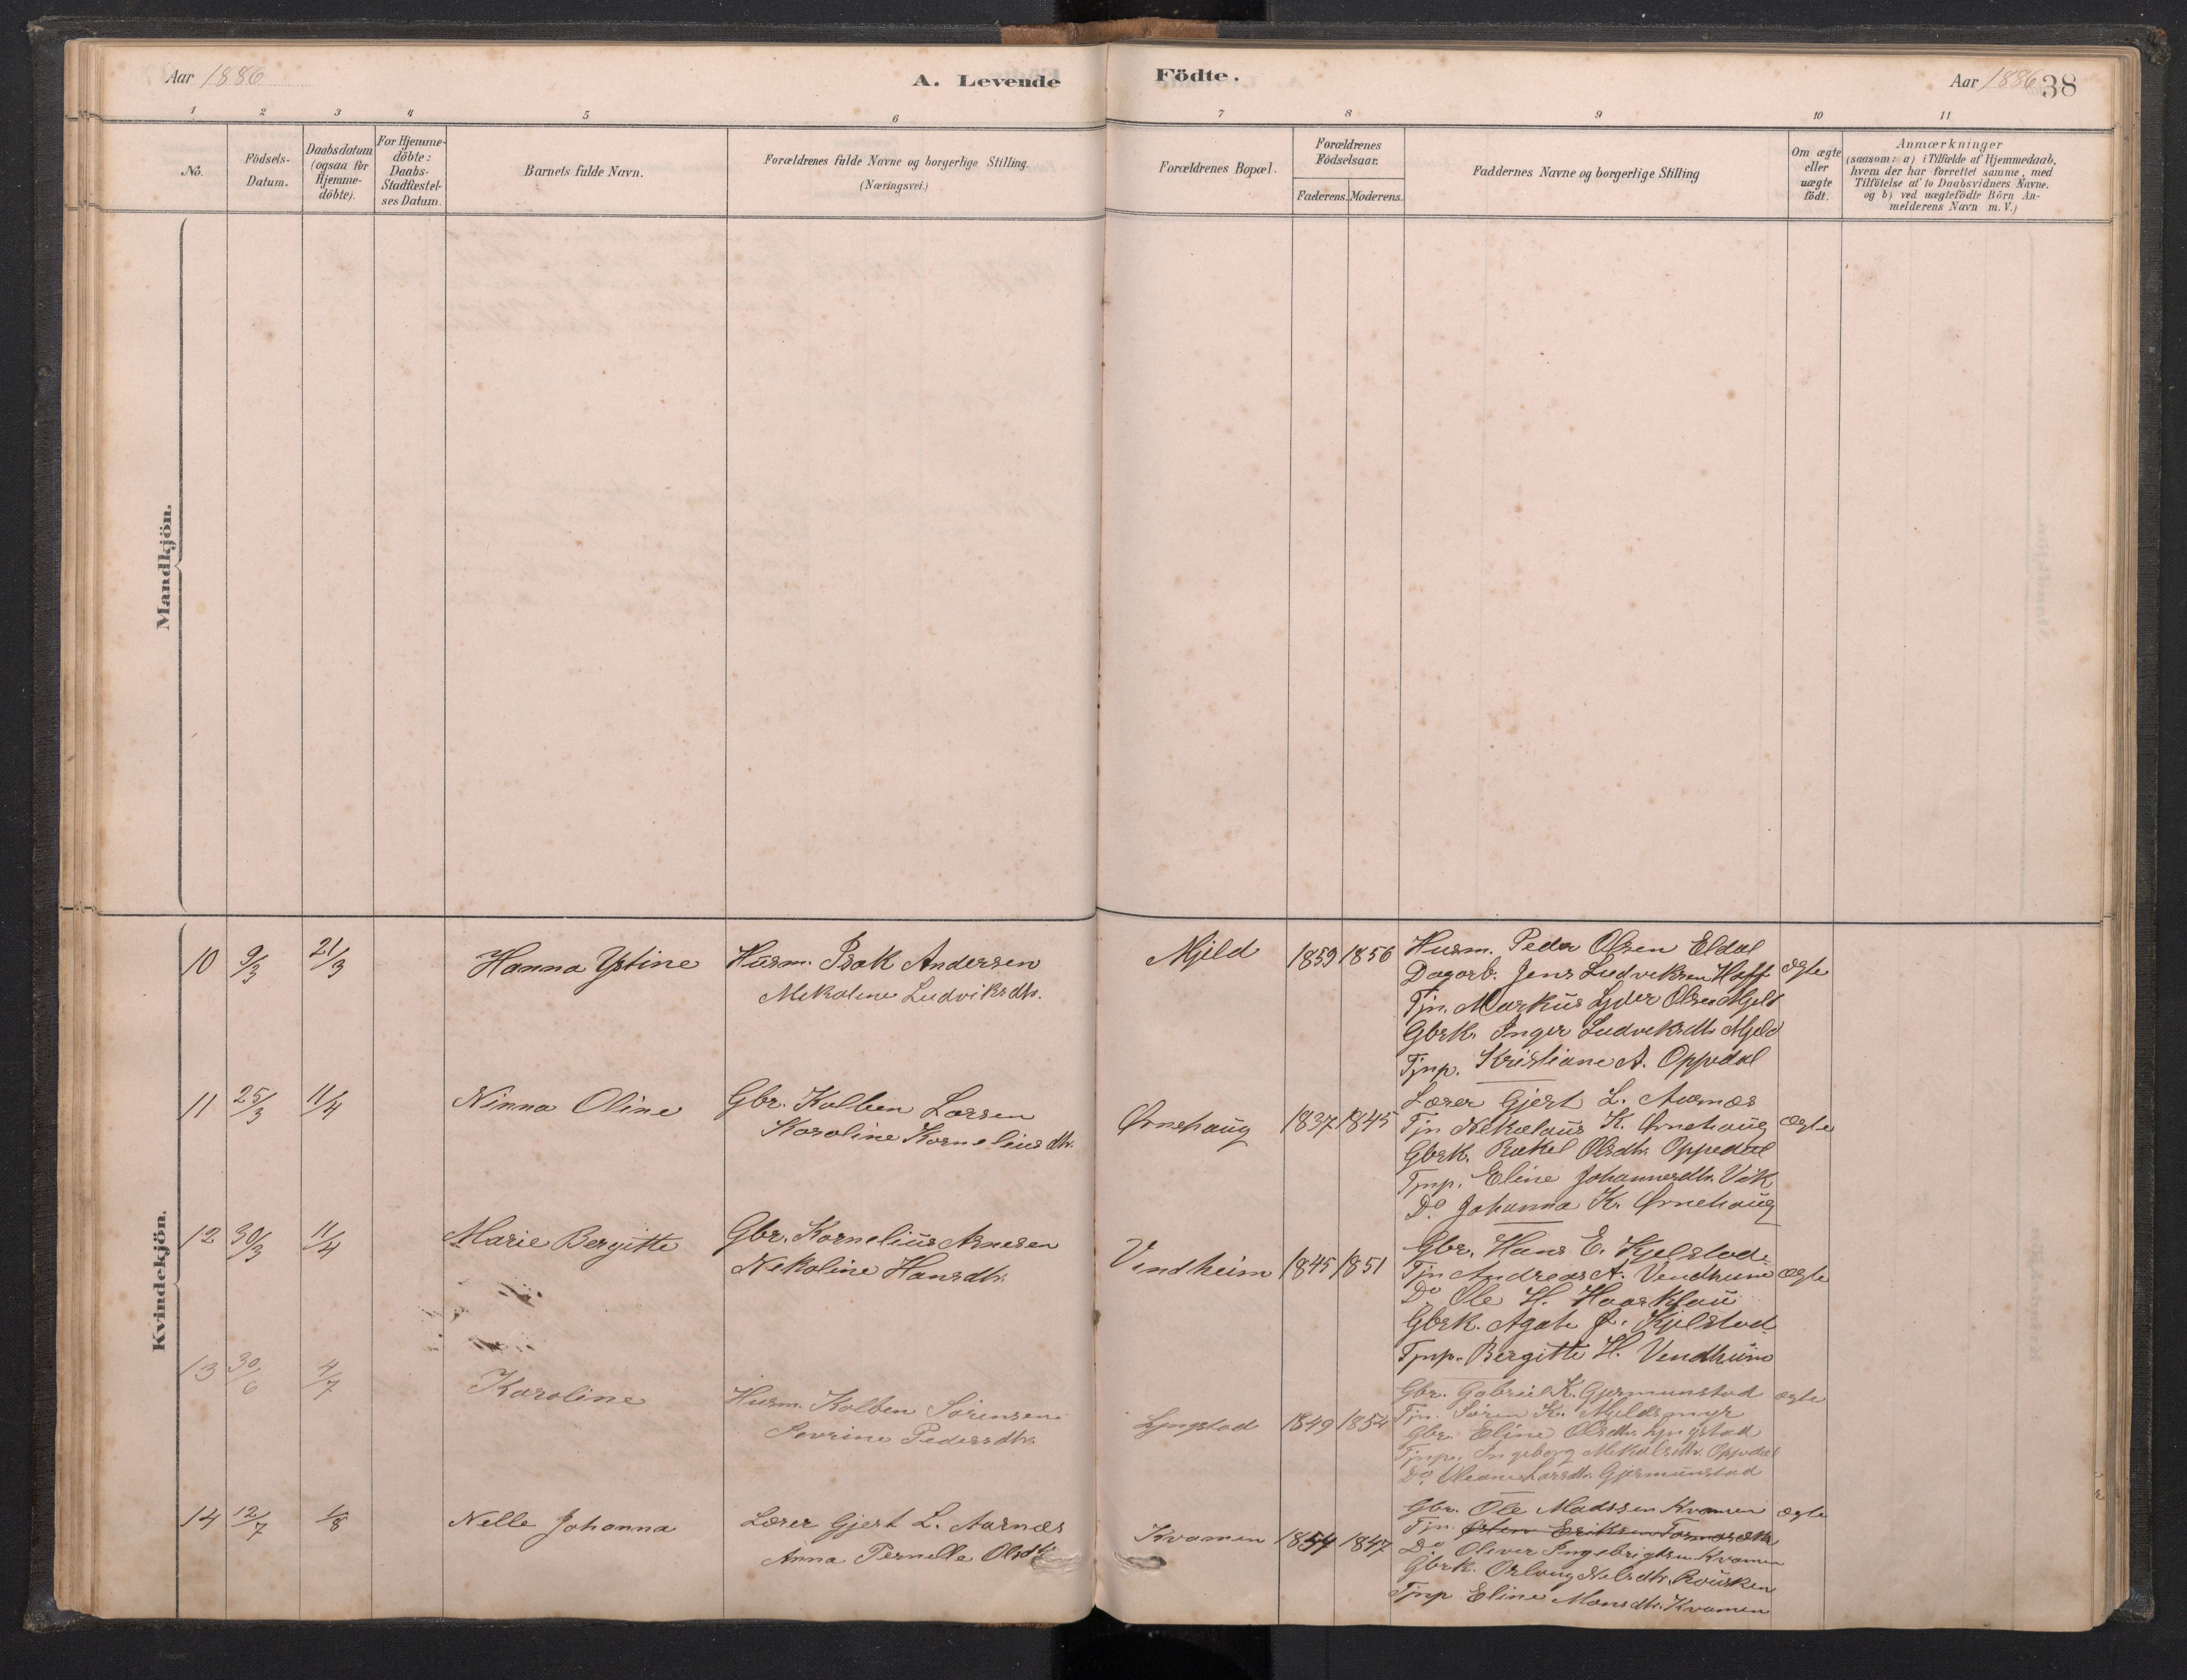 Aar 1886
A. Levende
Födte.
Aar 1886
38
1 2 3 4 5 6 7 8 9 10 11
No.
Födsels-
Datum.
Daabsdatum
(ogsaa for
Hjemme-
döbte).
For Hjemme-
döbte:
Daabs-
Stadfæstel-
ses Datum.
Barnets fulde Navn.
Forældrenes fulde Navne og borgerlige Stilling.
(Næringsvei.)
Forældrenes Bopæl.
Forældrenes
Födselsaar.
Faderens. Moderens.
Faddernes Navne og borgerlige Stilling
Om ægte
eller
uægte
født.
Anmærkninger
(saasom: a) i Tilfælde af Hjemmedaab,
hvem der har forrettet samme, med
Tilföielse af to Daabsvidners Navne.
og b) ved uægtefödte Börn An-
melderens Navn m. V.)
Mandkjön.
Kvindekjön.
10 9/3 21/3 Hanna Ystine
Husm. Isak Andersen
Mekaline Ludviksdtr.
Mjeld 1859 1856
Husm. Peder Olsen Eldal
Dagarb. Jens Ludviksen Hoff
Tjn. Markus Lyder Olsen Mjeld
Gbrk. Inger Ludviksdtr Mjeld
Tjnp. Kristiane A. Oppedal
ægte
11 25/3 11/4 Ninna Oline
Gbr. Kolben Larsen
Karoline Korneliusdtr.
Ørnehaug 1837 1845
Lærer Gjert L. Aarnæs
Tjn Nekolaus K. Ørnehaug
Gbrk. Rakel Olsdtr. Oppedal
Tjnp. Eline Johannesdtr. Vik
Do Johanna K. Ørnehaug
ægte
12 30/3 11/4 Marie Bergitte
Gbr. Kornelius Arnesen
Nekoline Hansdtr.
Vendheim 1845 1851
Gbr. Hans E. Kjelstad
Tjn Andreas A. Vendheim
Do Ole H. Haarklau
Gbrk. Agate J. Kjelstad
Tjnp. Bergitte H. Vendheim
ægte
13 30/6 4/7 Karoline
Husm. Kolben Sörensen
Sevrine Pedersdtr.
Lyngstad 1849 1854
Gbr. Gabriel K. Gjermunstad
Tjn. Sören K. Mjeldsmyr
Gbr. Eline Olsdtr. Lyngstad
Tjnp. Ingeborg Mekalsdtr. Oppedal
Do Oleane Larsdtr. Gjermunstad
ægte
14 12/7 1/8 Nelle Johanna
Lærer Gjert L. Aarnæs
Anna Pernelle Olsdtr
Kvamen 1854 1847
Gbr. Ole Madssen Kvamen
Tjn. Eriksen
Do Oliver Ingebrigtsen Kvamen
Gbrk. Oslaug Nelsdtr. Rousken
Tjnp Eline Monsdtr. Kvamen
ægte